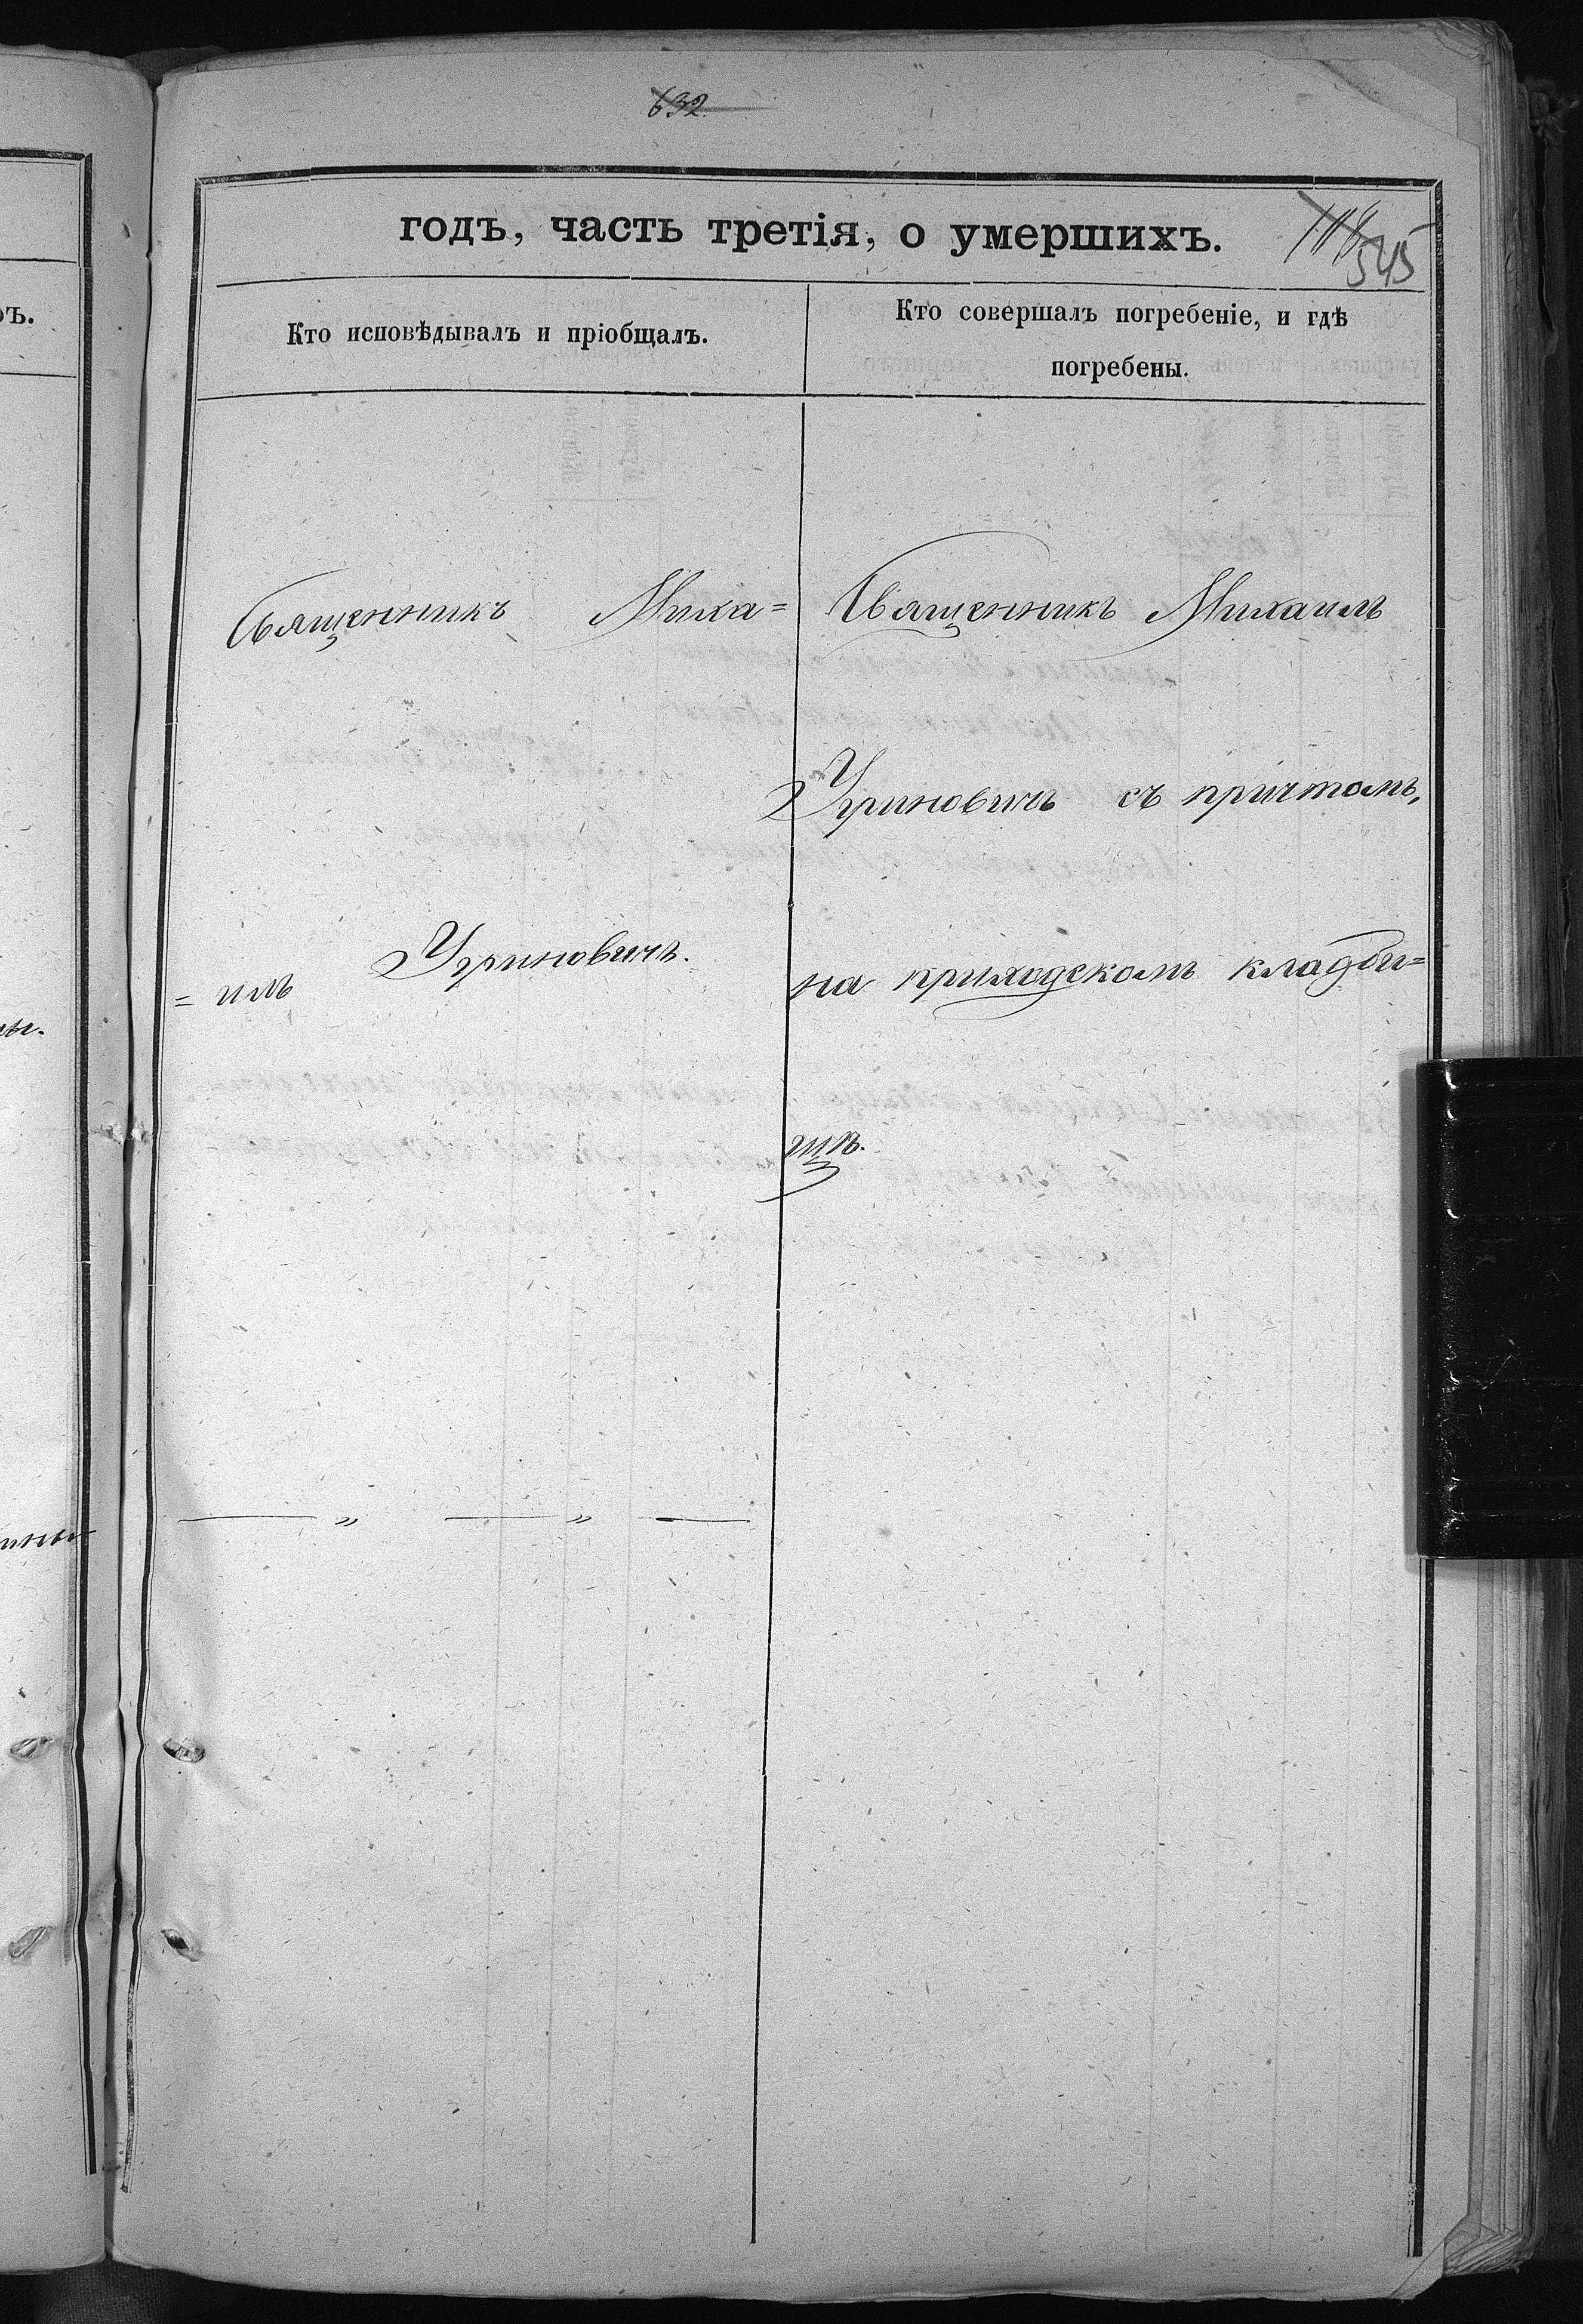 632
годъ, часть третія, о умершихъ.
545
Кто исповѣдывалъ и пріобщалъ.
Кто совершалъ погребеніе, и гдѣ
погребены.
Священникъ Миха=
=илъ Угриновичъ.
Священникъ Михаилъ
Угриновичъ съ причтомъ,
на приходскомъ кладби=
щѣ.
— „ — „ —